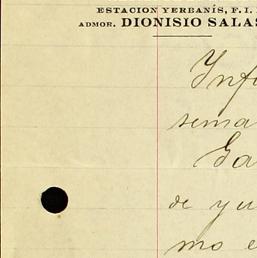 ESTACION YERBANÍS, F. I.
ADMOR. DIONISIO SALAS
Inf
sema
Ga
de yu
mo e